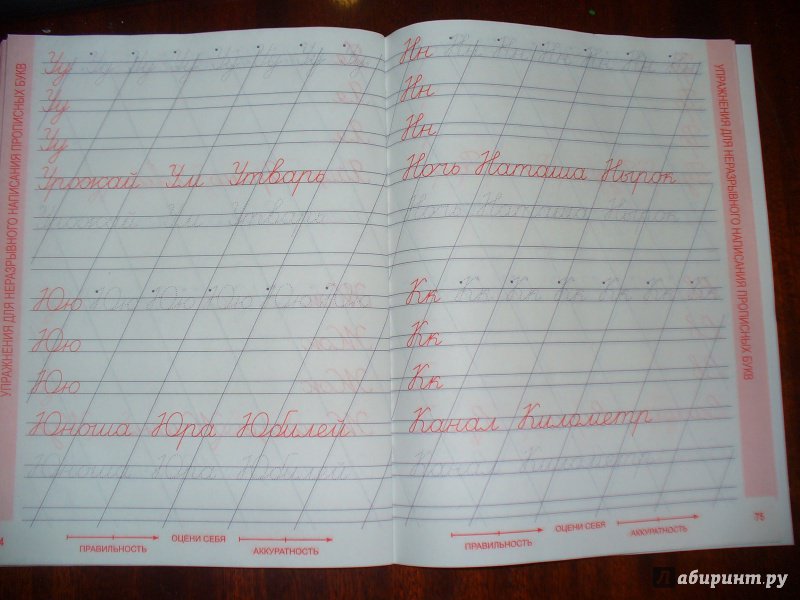 УПРАЖНЕНИЯ ДЛЯ НЕРАЗРЫВНОГО НАПИСАНИЯ ПРОПИСНЫХ БУКВ
Уу Уу Уу Уу Уу Уу Уу Уу
Уу
Уу
Урожай Ум Утварь
Урожай Ум Утварь
Юю Юю Юю Юю Юю Юю
Юю
Юю
Юноша Юра Юбилей
Юноша Юра Юбилей
ПРАВИЛЬНОСТЬ ОЦЕНИ СЕБЯ АККУРАТНОСТЬ
4
Нн Нн Нн Нн Нн Нн Нн
Нн
Нн
Ночь Наташа Нырок
Ночь Наташа Нырок
Кк Кк Кк Кк Кк Кк Кк
Кк
Кк
Канал Километр
Канал Километр
ПРАВИЛЬНОСТЬ ОЦЕНИ СЕБЯ АККУРАТНОСТЬ
УПРАЖНЕНИЯ ДЛЯ НЕРАЗРЫВНОГО НАПИСАНИЯ ПРОПИСНЫХ БУКВ
Лабиринт.ру